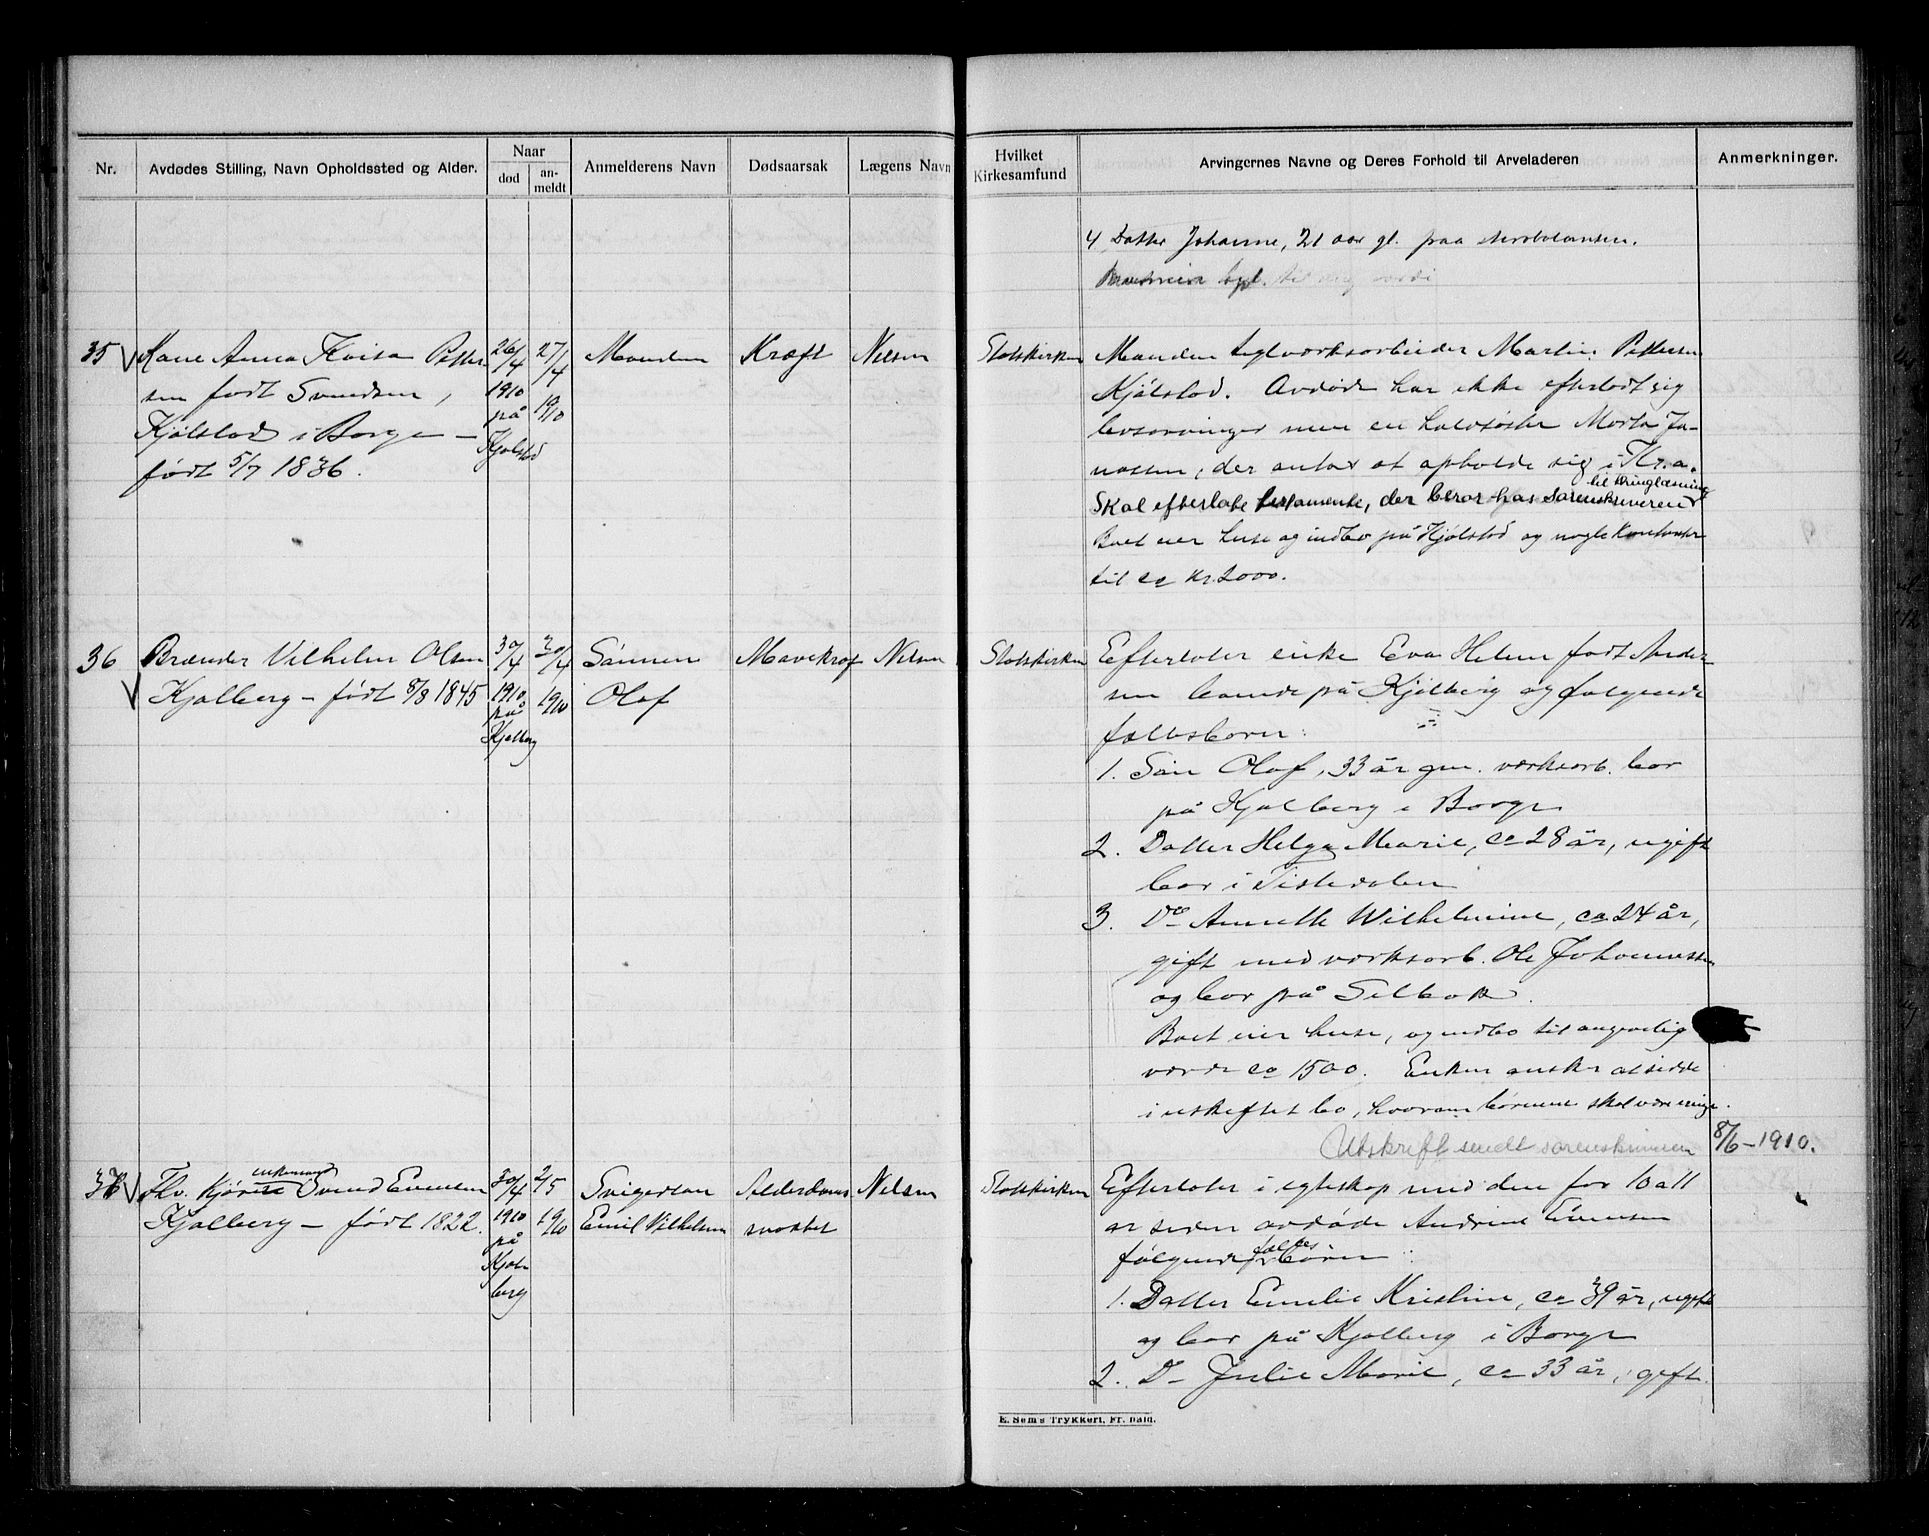 Nr.
Avdødes Stilling, Navn Opholdssted og Alder.
Naar
død
an-
meldt
Anmelderens Navn
Dødsaarsak
Lægens Navn
Hvilket
Kirkesamfund
Arvingernes Navne og Deres Forhold til Arveladeren
Anmerkninger.
4 Datter Johanne, 21 aar gl. paa
til
35 Kone Anna Lovisa Petter-
sen født Svendsen,
Kjølstad i Borge –
født 5/7 1836.
26/4
1910
på
Kjølstad
27/4
1910
Manden
Kræft
Nilsen
Statskirken
Manden teglverksarbeider Martin Pettersen
Kjølstad. Avdøde har ikke efterlatt sig
livsarvinger men en halvsøster Marta Jo-
nassen, der antas at opholde sig i Kr.a.
Skal efterlate testamente, der beror hos sorenskriveren til thinglæsning
Boet eier huse og indbo på Kjølstad og nogle kontanter
til ca kr. 2000.
36 Brænder Vilhelm Olsen
Kjølberg – født 8/8 1845
30/4
1910
på
Kjølberg
30/4
1910
Sønnen
Olaf
Mavekræft
Nilsen
Statskirken
Efterlater enke Eva Helene født Ander-
sen boende på Kjølberg og følgende
fællesbørn:
1. Søn Olaf, 33 år gm. verksarb. bor
på Kjølberg i Borge
2. Datter Helga Marie, ca 28 år, ugift
bor i Tistedalen
3. Do Annette Wilhelmine, ca 24 år,
gift med verksarb. Ole Johannessen
og bor på Selbak.
Boet eier huse, og indbo til angivelig
værdi ca 1500. Enken ønsker at sidde
i uskiftet bo, hvorom børnene skal være enige.
Utskrift sendt sorenskriveren 8/6 – 1910.
37 Fhv. Kjører enkemand Svend Evensen
Kjølberg – født 1822.
30/4
1910
på
Kjøl-
berg
2/5
1910
Svigersøn
Emil Vilhelmsen
Alderdoms
svakhet
Nilsen
Statskirken
Efterlater i egteskap med den for 10 a 11
år siden avdøde Andrine Evensen
følgende fælles børn:
1. Datter Emelie Kristine, ca 39 år, ugift
og bor på Kjølberg i Borge
2. D– Julie Marie, ca 33 år, gift
E. Sem's Trykkeri, Fr.hald.